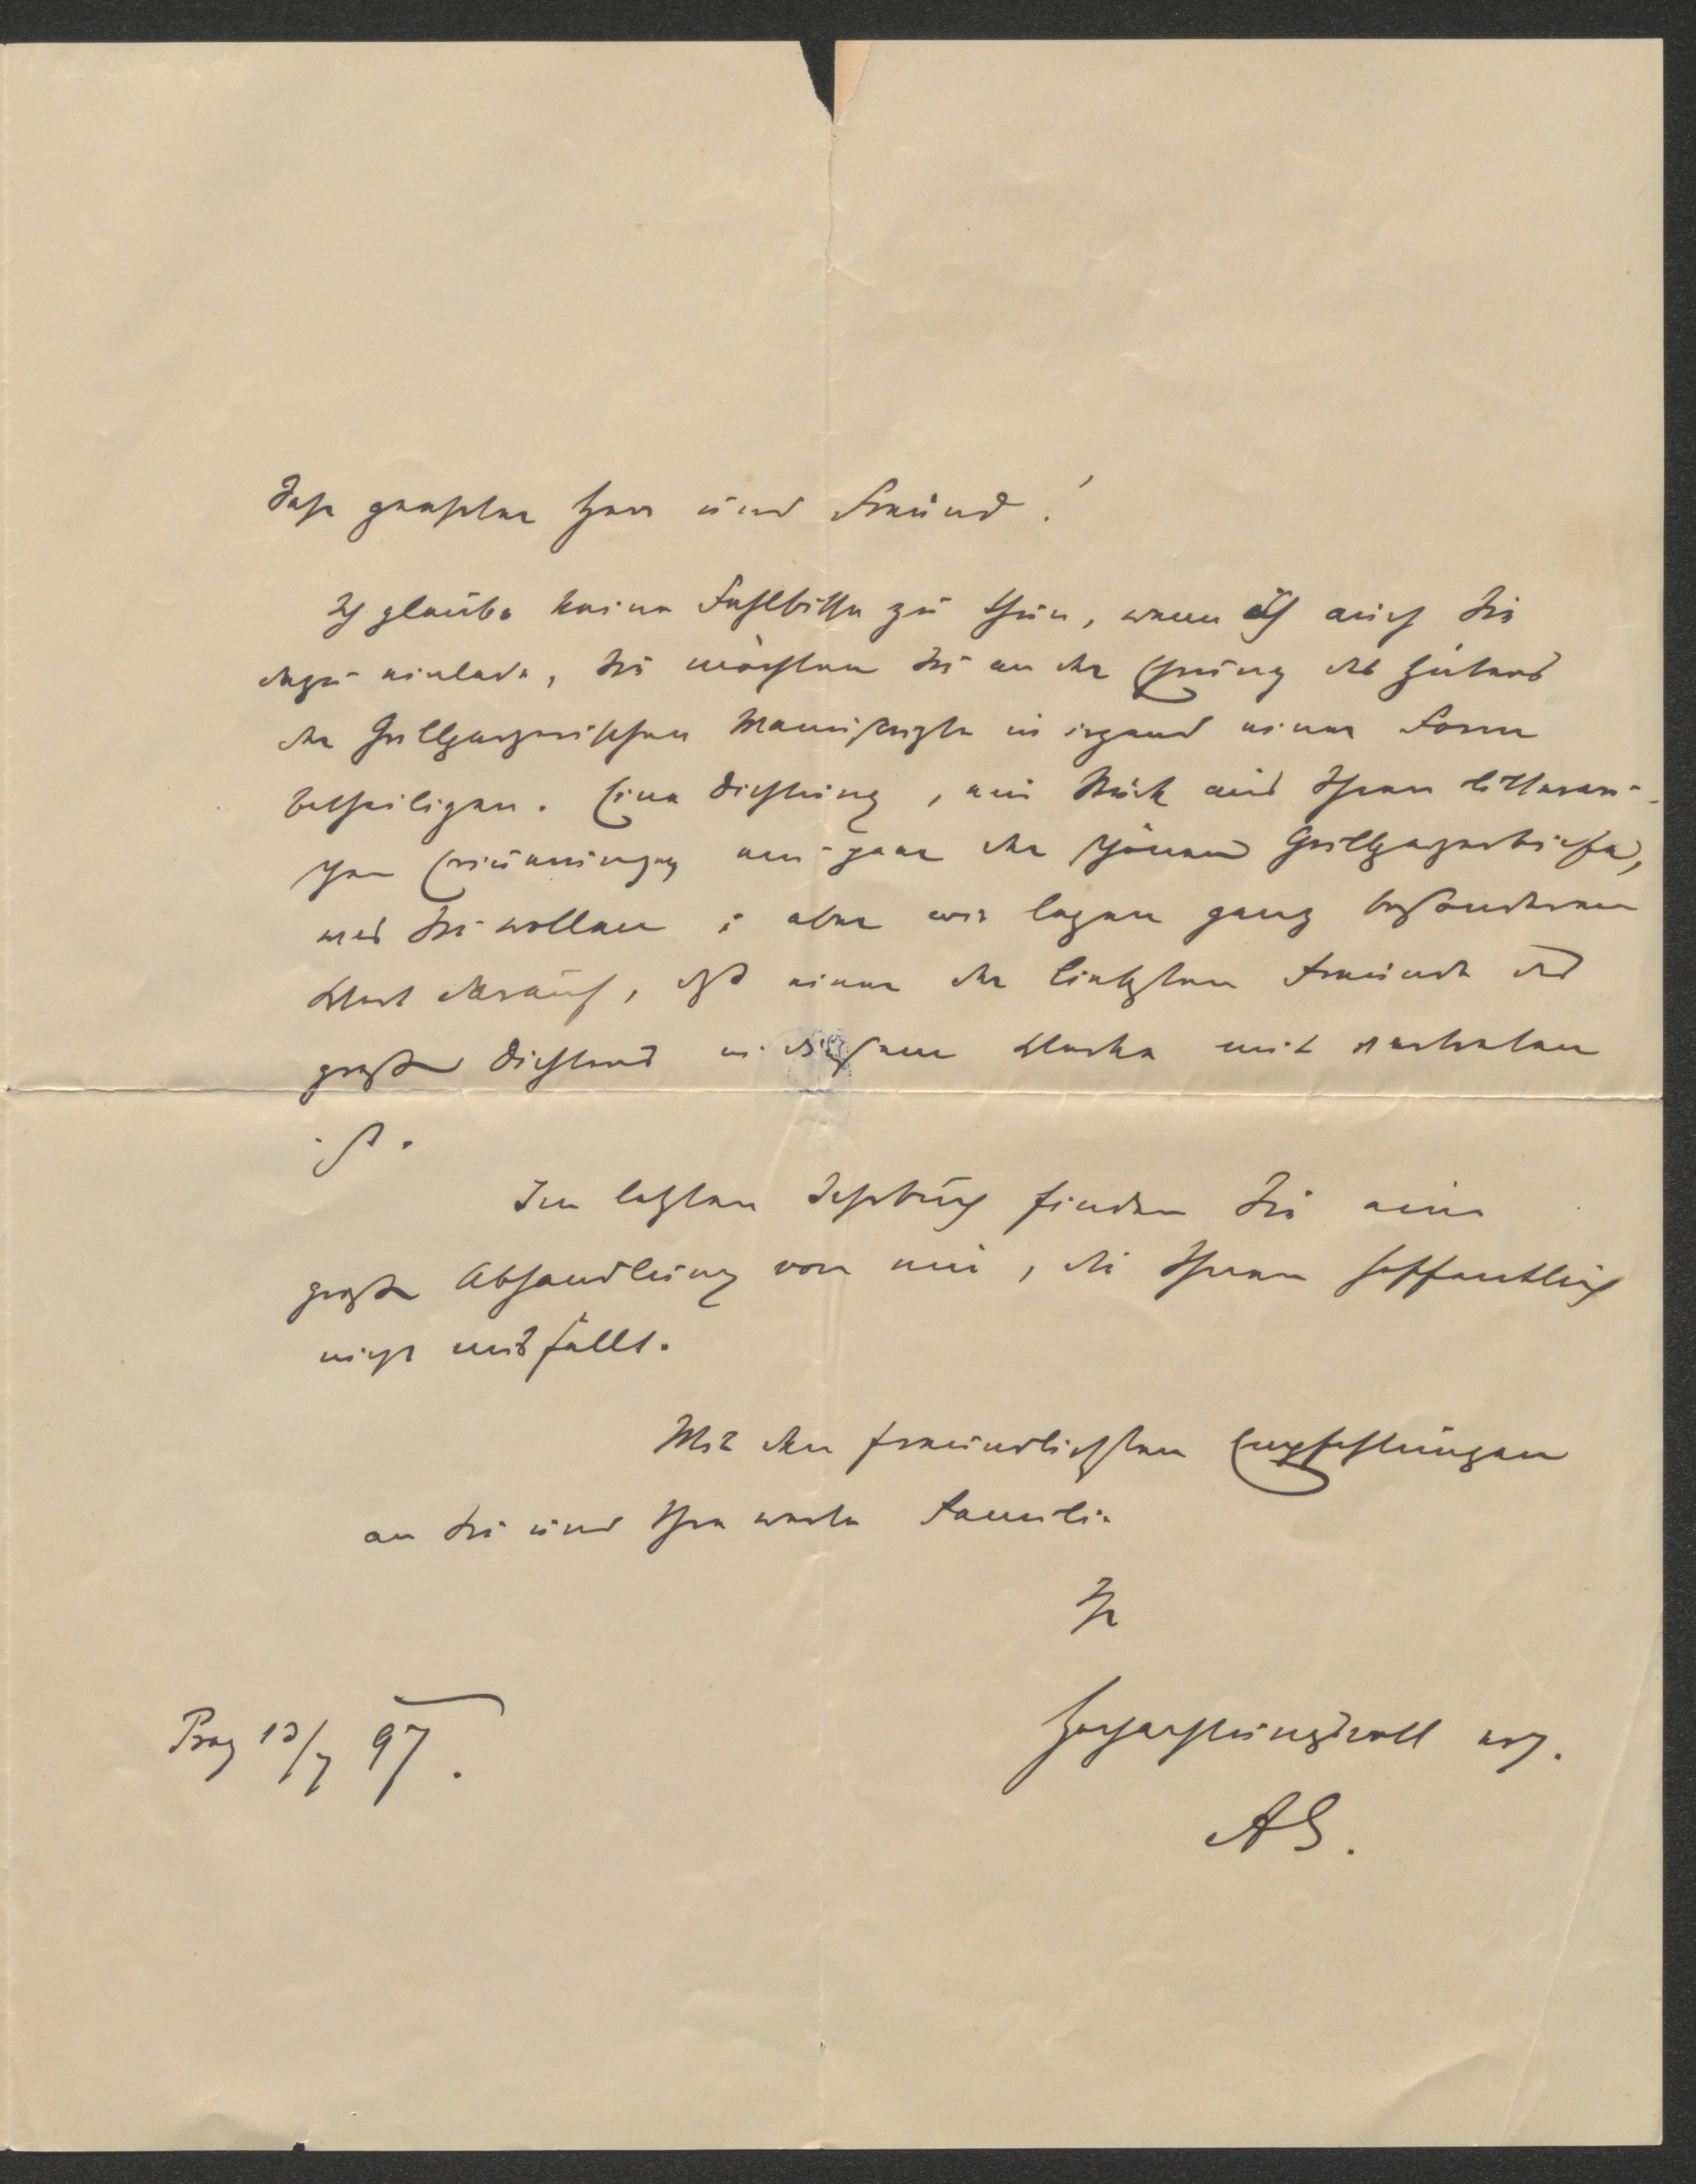 Sehr geehrter Herr und Freund!
Ich glaube keine Fehlbitte zu thun, wenn ich auch Sie
dazu einlade, Sie möchten Sie an der Ehrung des Hüters
der Grillparzerischen Manuskripte in irgend einer Form
betheiligen. Eine Dichtung, ein Stück aus Ihren litterari-
schen Erinnerungen ein paar der schönen Grillparzerbriefe,
was Sie wollen; aber wir legen ganz besonderen
Wert darauf, daß einer der liebsten Freunde des
großen Dichters in diesem Werke mit vertreten
ist.
Im letzten Jahrbuch finden Sie eine
große Abhandlung von mir, die Ihnen hoffentlich
nicht misfällt.
Mit den freundlichsten Empfehlungen
an Sie und Ihre werte Familie
Ihr
Hochachtungsvoll erg.
Prag 13/7 97.
AS.